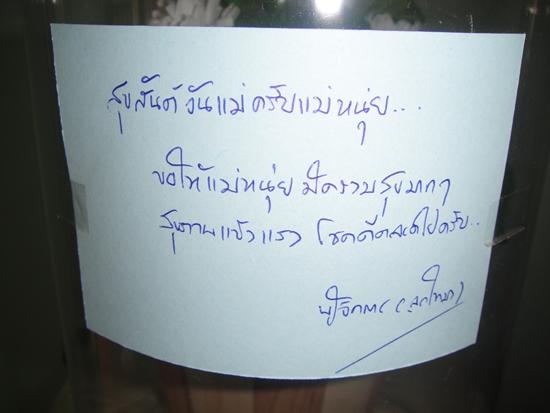 สุขสันต์วันแม่ครับแม่หนุ่ย...
ขอให้แม่หนุ่ย มีความสุขมากๆ
สุขภาพแข็งแรง โชคดีตลอดไปครับ..